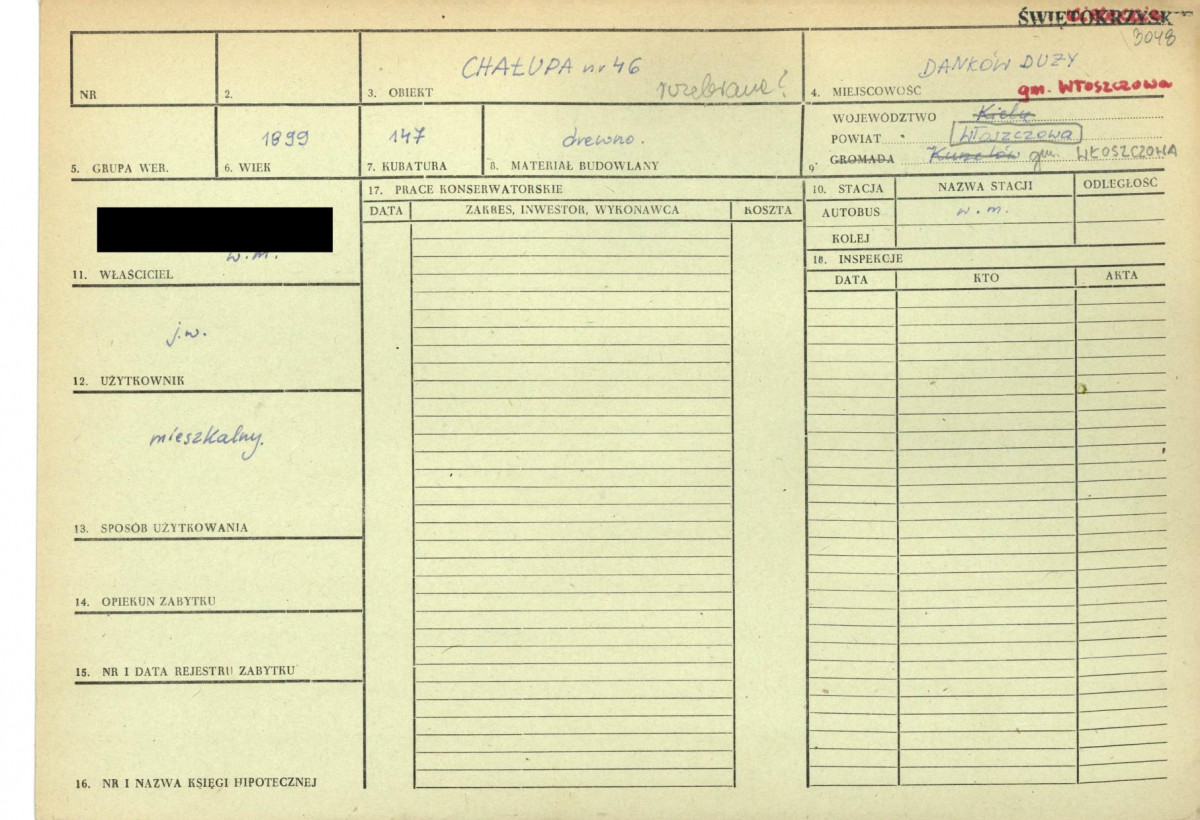 ŚWIĘTOKRZYSK
3048
NR
2.
CHAŁUPA nr 46
rozebrana?
3. OBIEKT
DANKÓW DUŻY
4. MIEJSCOWOŚĆ
gm. WŁOSZCZOWA
5. GRUPA WER.
1899
6. WIEK
147
7. KUBATURA
drewno.
8. MATERIAŁ BUDOWLANY
WOJEWÓDZTWO Kielce
POWIAT Włoszczowa
9. GROMADA Kurzelów gm. WŁOSZCZOWA
w.m.
11. WŁAŚCICIEL
j.w.
12. UŻYTKOWNIK
mieszkalny.
13. SPOSÓB UŻYTKOWANIA
14. OPIEKUN ZABYTKU
15. NR I DATA REJESTRU ZABYTKU
16. NR I NAZWA KSIĘGI HIPOTECZNEJ
17. PRACE KONSERWATORSKIE
DATA ZAKRES, INWESTOR, WYKONAWCA KOSZTA
10. STACJA NAZWA STACJI ODLEGŁOŚĆ
AUTOBUS w.m.
KOLEJ
18. INSPEKCJE
DATA KTO AKTA